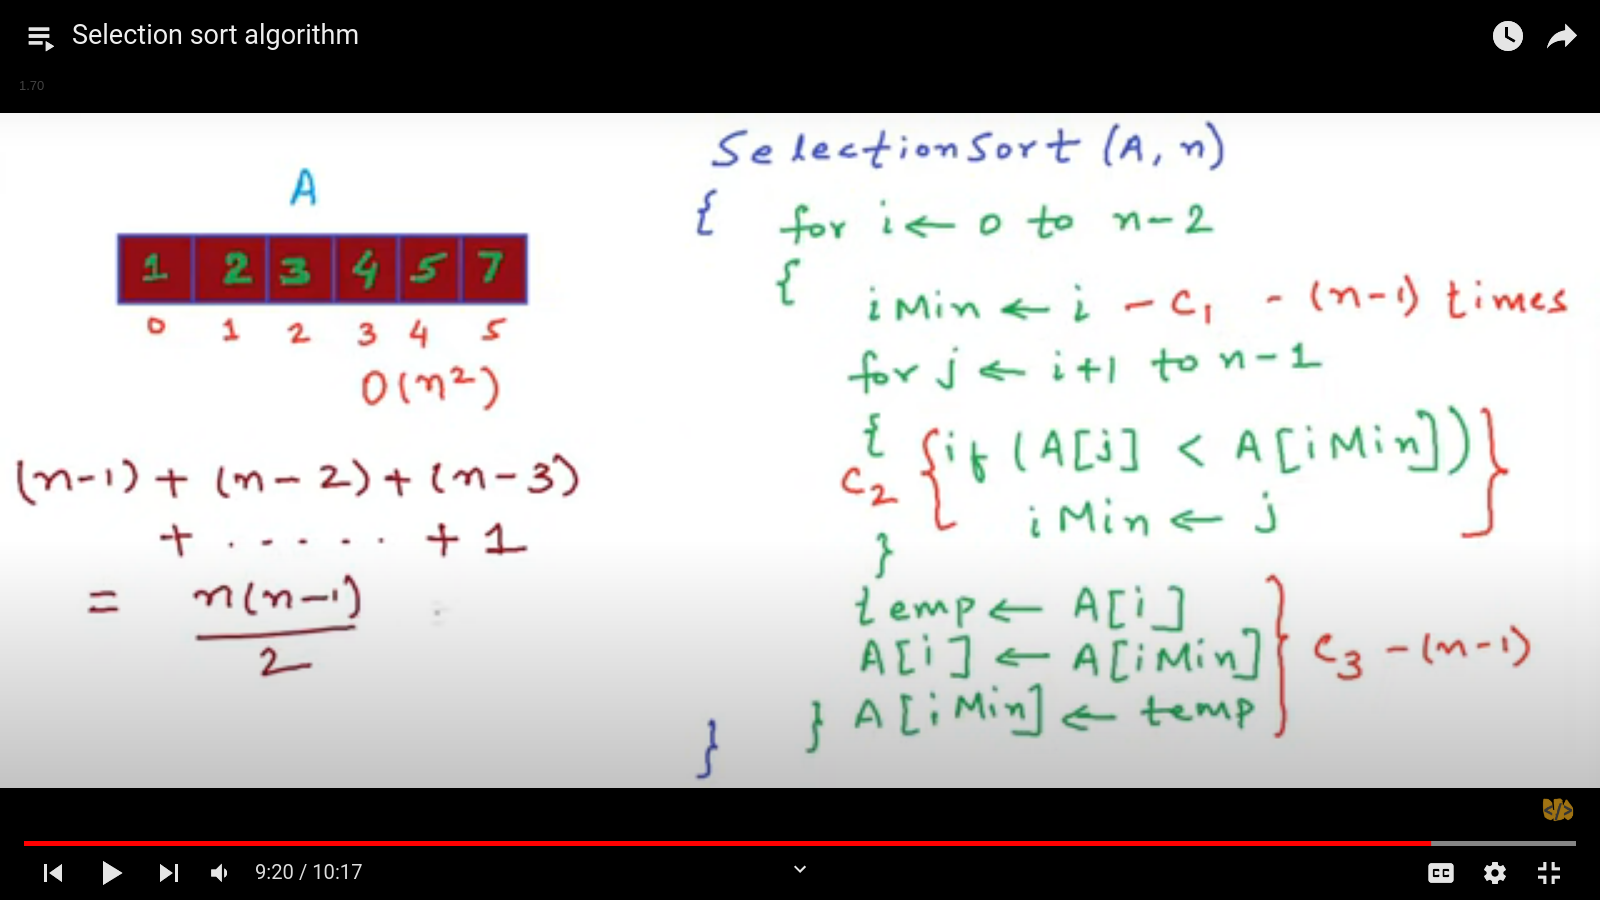 Selection sort algorithm
1.70
A
1 2 3 4 5 7
0 1 2 3 4 5
O(n²)
(n-1) + (n-2) + (n-3)
+ ..... + 1
= n(n-1)
2
SelectionSort (A, n)
{ for i ← 0 to n-2
{
iMin ← i - C₁ - (n-1) times
for j ← i+1 to n-1
{ { if (A[j] < A[iMin]) }
C₂
iMin ← j
}
temp ← A[i]
A[i] ← A[iMin] } C₃ - (n-1)
} A[iMin] ← temp
}
</>
9:20 / 10:17
CC